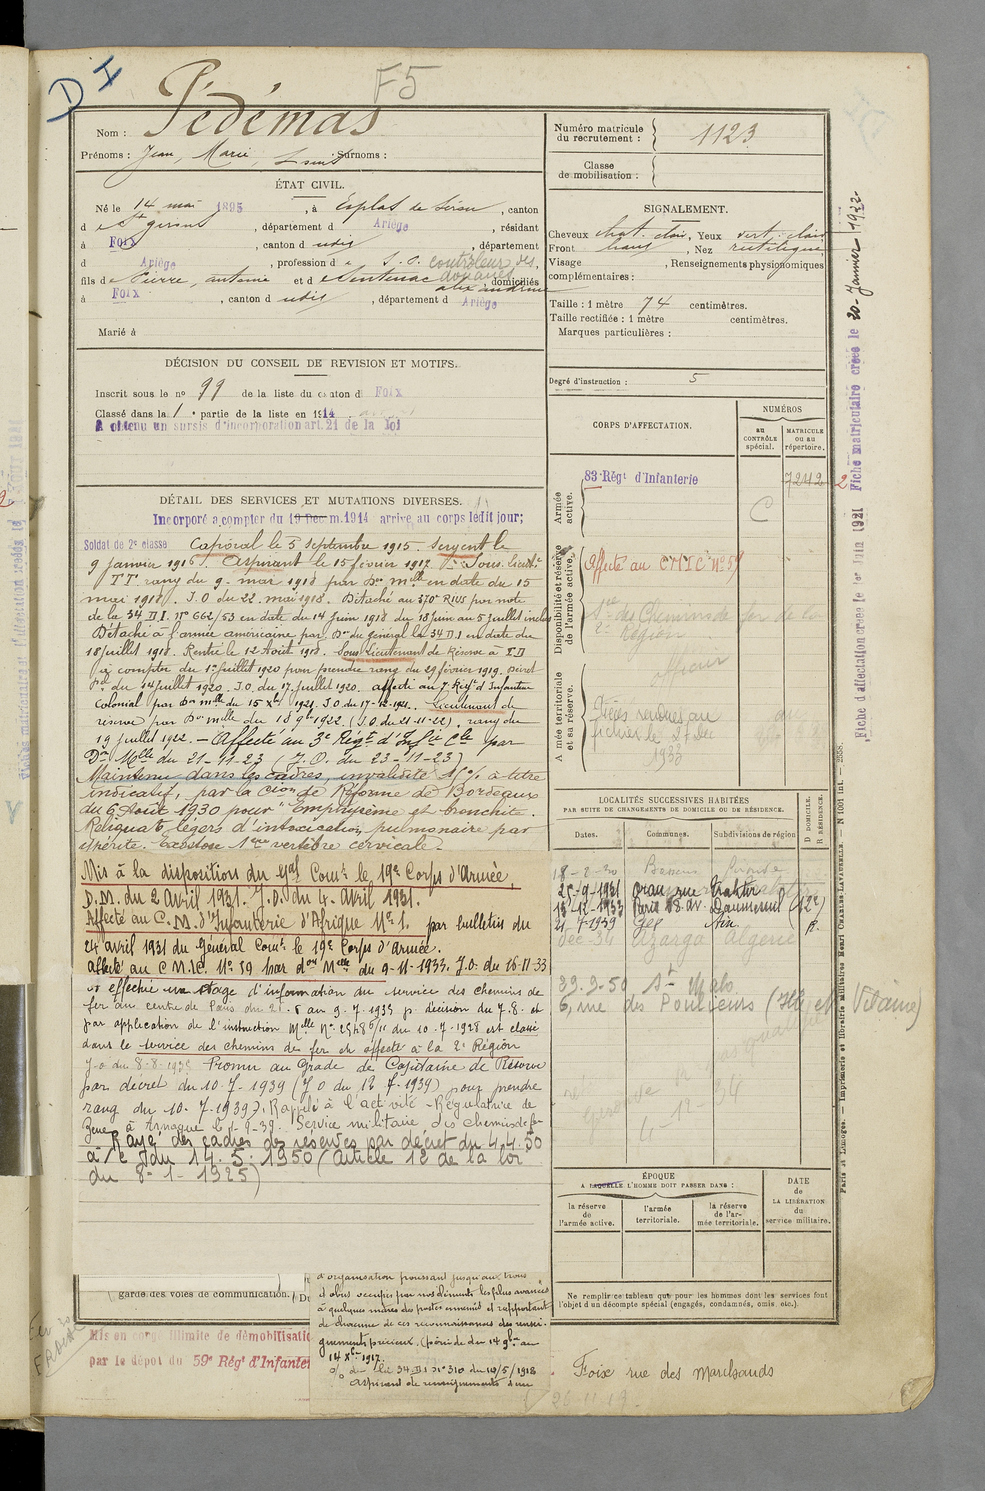 D I
F5
Nom : Pédémas
Prénoms : Jean, Marie, Louis Surnoms :
ÉTAT CIVIL.
Né le 14 mai 1895, à Esplas de Sérou, canton
d e St Girons, département d Ariège, résidant
à Foix, canton d udis, département
d Ariège, profession d e S.P. contrôleur des douanes,
fils d e Pierre, antoine et d e Sentenac alexandrine domiciliés
à Foix, canton d udis, département d Ariège
Marié à
DÉCISION DU CONSEIL DE REVISION ET MOTIFS.
Inscrit sous le no 99 de la liste du canton d Foix
Classé dans la 1e partie de la liste en 1914
A obtenu un sursis d'incorporation art. 21 de la loi
DÉTAIL DES SERVICES ET MUTATIONS DIVERSES.
Incorporé à compter du 19 Dec m. 1914 arrivé au corps ledit jour;
Soldat de 2e classe Caporal le 5 septembre 1915. Sergent le
9 janvier 1916. Aspirant le 15 février 1917. Sous-lieutt
TT rang du 9 mai 1918 par Don mlle en date du 15
mai 1918. J.O du 22 mai 1918. Détaché au 370e RIUS par note
de la 34 D.I. No 662/53 en date du 14 juin 1918 du 18 juin au 5 juillet inclus
Détaché à l'armée américaine par Don du général Ct 34 D.I en date du
18 juillet 1918. Rentré le 12 Août 1918. Sous Lieutenant de Réserve à T.D
à compter du 1er juillet 1920 pour prendre rang du 29 février 1919. Décret
Pel du 14 juillet 1920. J.O. du 17 juillet 1920. affecté au 7 Regt d'Infanterie
Colonial par Don mlle du 15 Xbre 1921. J.O du 17-12-1921. Lieutenant de
réserve par Don mlle du 18 9bre 1922 (J.O. du 21-11-22). rang du
19 juillet 1922. — Affecté au 3e Régt d'Infie Cle par
Don Mlle du 21-11-23 (J.O. du 23-11-23)
Maintenu dans les cadres, invalidité 15% à titre
indicatif, par la Cion de Réforme de Bordeaux
du 6 Août 1930 pour "Emphysème et bronchite.
Reliquats légers d'intoxication pulmonaire par
ypérite. Exostose 1ère vertèbre cervicale.
Mis à la disposition du Gal Comt le 19e Corps d'Armée,
D.M. du 2 Avril 1931. J.O. du 4 Avril 1931.
Affecté au C.M. d'Infanterie d'Afrique No 1. par bulletin du
24 avril 1931 du Général Comt le 19e Corps d'Armée.
affecté au C M.I.C. No 59 par don Melle du 9-11-1933. J.O. du 16-11-33
a effectué un stage d'information du service des chemins de
fer au centre de Paris du 21.8 au 9.7.35 p. décision du 7.8. et
par application de l'instruction Melle No 2548 6/11 du 10.7.1928 est classé
dans le service des chemins de fer et affecté à la 2e Région
J.O du 8-8-1935 Promu au Grade de Capitaine de Réserve
par décret du 10-7-1939 (J O du 12-7-1939) pour prendre
rang du 10-7-1939. Rappelé à l'activité - Régulatrice de
à le 1-9-39. Service militaire des chemins de fer
Rayé des cadres des réserves par décret du 4.4.50
à/c du 14.5.1950 (Article 12 de la loi
du 8-1-1925)
garde des voies de communication.
Mis en congé illimité de démobilisatio
par le dépôt du 59e Régt d'Infanter
d'organisation poussant jusqu'aux trous
d'obus occupés par nos éléments les plus avancés
à quelques mètres des postes ennemis et rapportant
de chacune de ces reconnaissances des rensei-
gnements précieux. (période du 14 9bre au
14 Xbre 1917.
O/o de la 34 D.I No 310 du 10/5/1918
aspirant de renseignements d'un
Numéro matricule du recrutement : 1123
Classe de mobilisation :
SIGNALEMENT.
Cheveux chat. clair, Yeux vert. clair
Front haut, Nez rectiligne,
Visage , Renseignements physionomiques
complémentaires :
Taille : 1 mètre 74 centimètres.
Taille rectifiée : 1 mètre centimètres.
Marques particulières :
Degré d'instruction : 5
CORPS D'AFFECTATION.
NUMÉROS
au CONTRÔLE spécial.
MATRICULE ou au répertoire.
Armée active.
83e Régt d'Infanterie
C
7242
2
Disponibilité et réserve de l'armée active.
Affecté au CMIC No 59
Sce des Chemins de fer de la
2e Région
officier
Armée territoriale et sa réserve.
Pièces rendues au
fichier le 27 Dec
1933
LOCALITÉS SUCCESSIVES HABITÉES
PAR SUITE DE CHANGEMENTS DE DOMICILE OU DE RÉSIDENCE.
Dates.
Communes.
Subdivisions de région
D DOMICILE. R RÉSIDENCE.
18-2-30 Bassens Gironde
25-9-1931 Oran rue
13-12-1933 Paris 18 av. Daumesnil (12e)
21-7-1939 Gex Ain R.
Dec-34 Algérie
29.3.50 St Malo
6, rue des Pouliceurs (Ille et Vilaine)
Gironde
4-12-34
ÉPOQUE
A LAQUELLE L'HOMME DOIT PASSER DANS :
la réserve de l'armée active.
l'armée territoriale.
la réserve de l'armée territoriale.
DATE de LA LIBÉRATION du service militaire.
Ne remplir ce tableau que pour les hommes dont les services font
l'objet d'un décompte spécial (engagés, condamnés, omis etc.).
Foix rue des Marchands
26-11-19
Fiche d'affectation créée le 1er Juin 1921 Fiche matriculaire créée le 20 Janvier 1922
Paris et Limoges. — Imprimerie et librairie Militaires Henri CHARLES-LAVAUZELLE. — N 1001 int. — 2555.